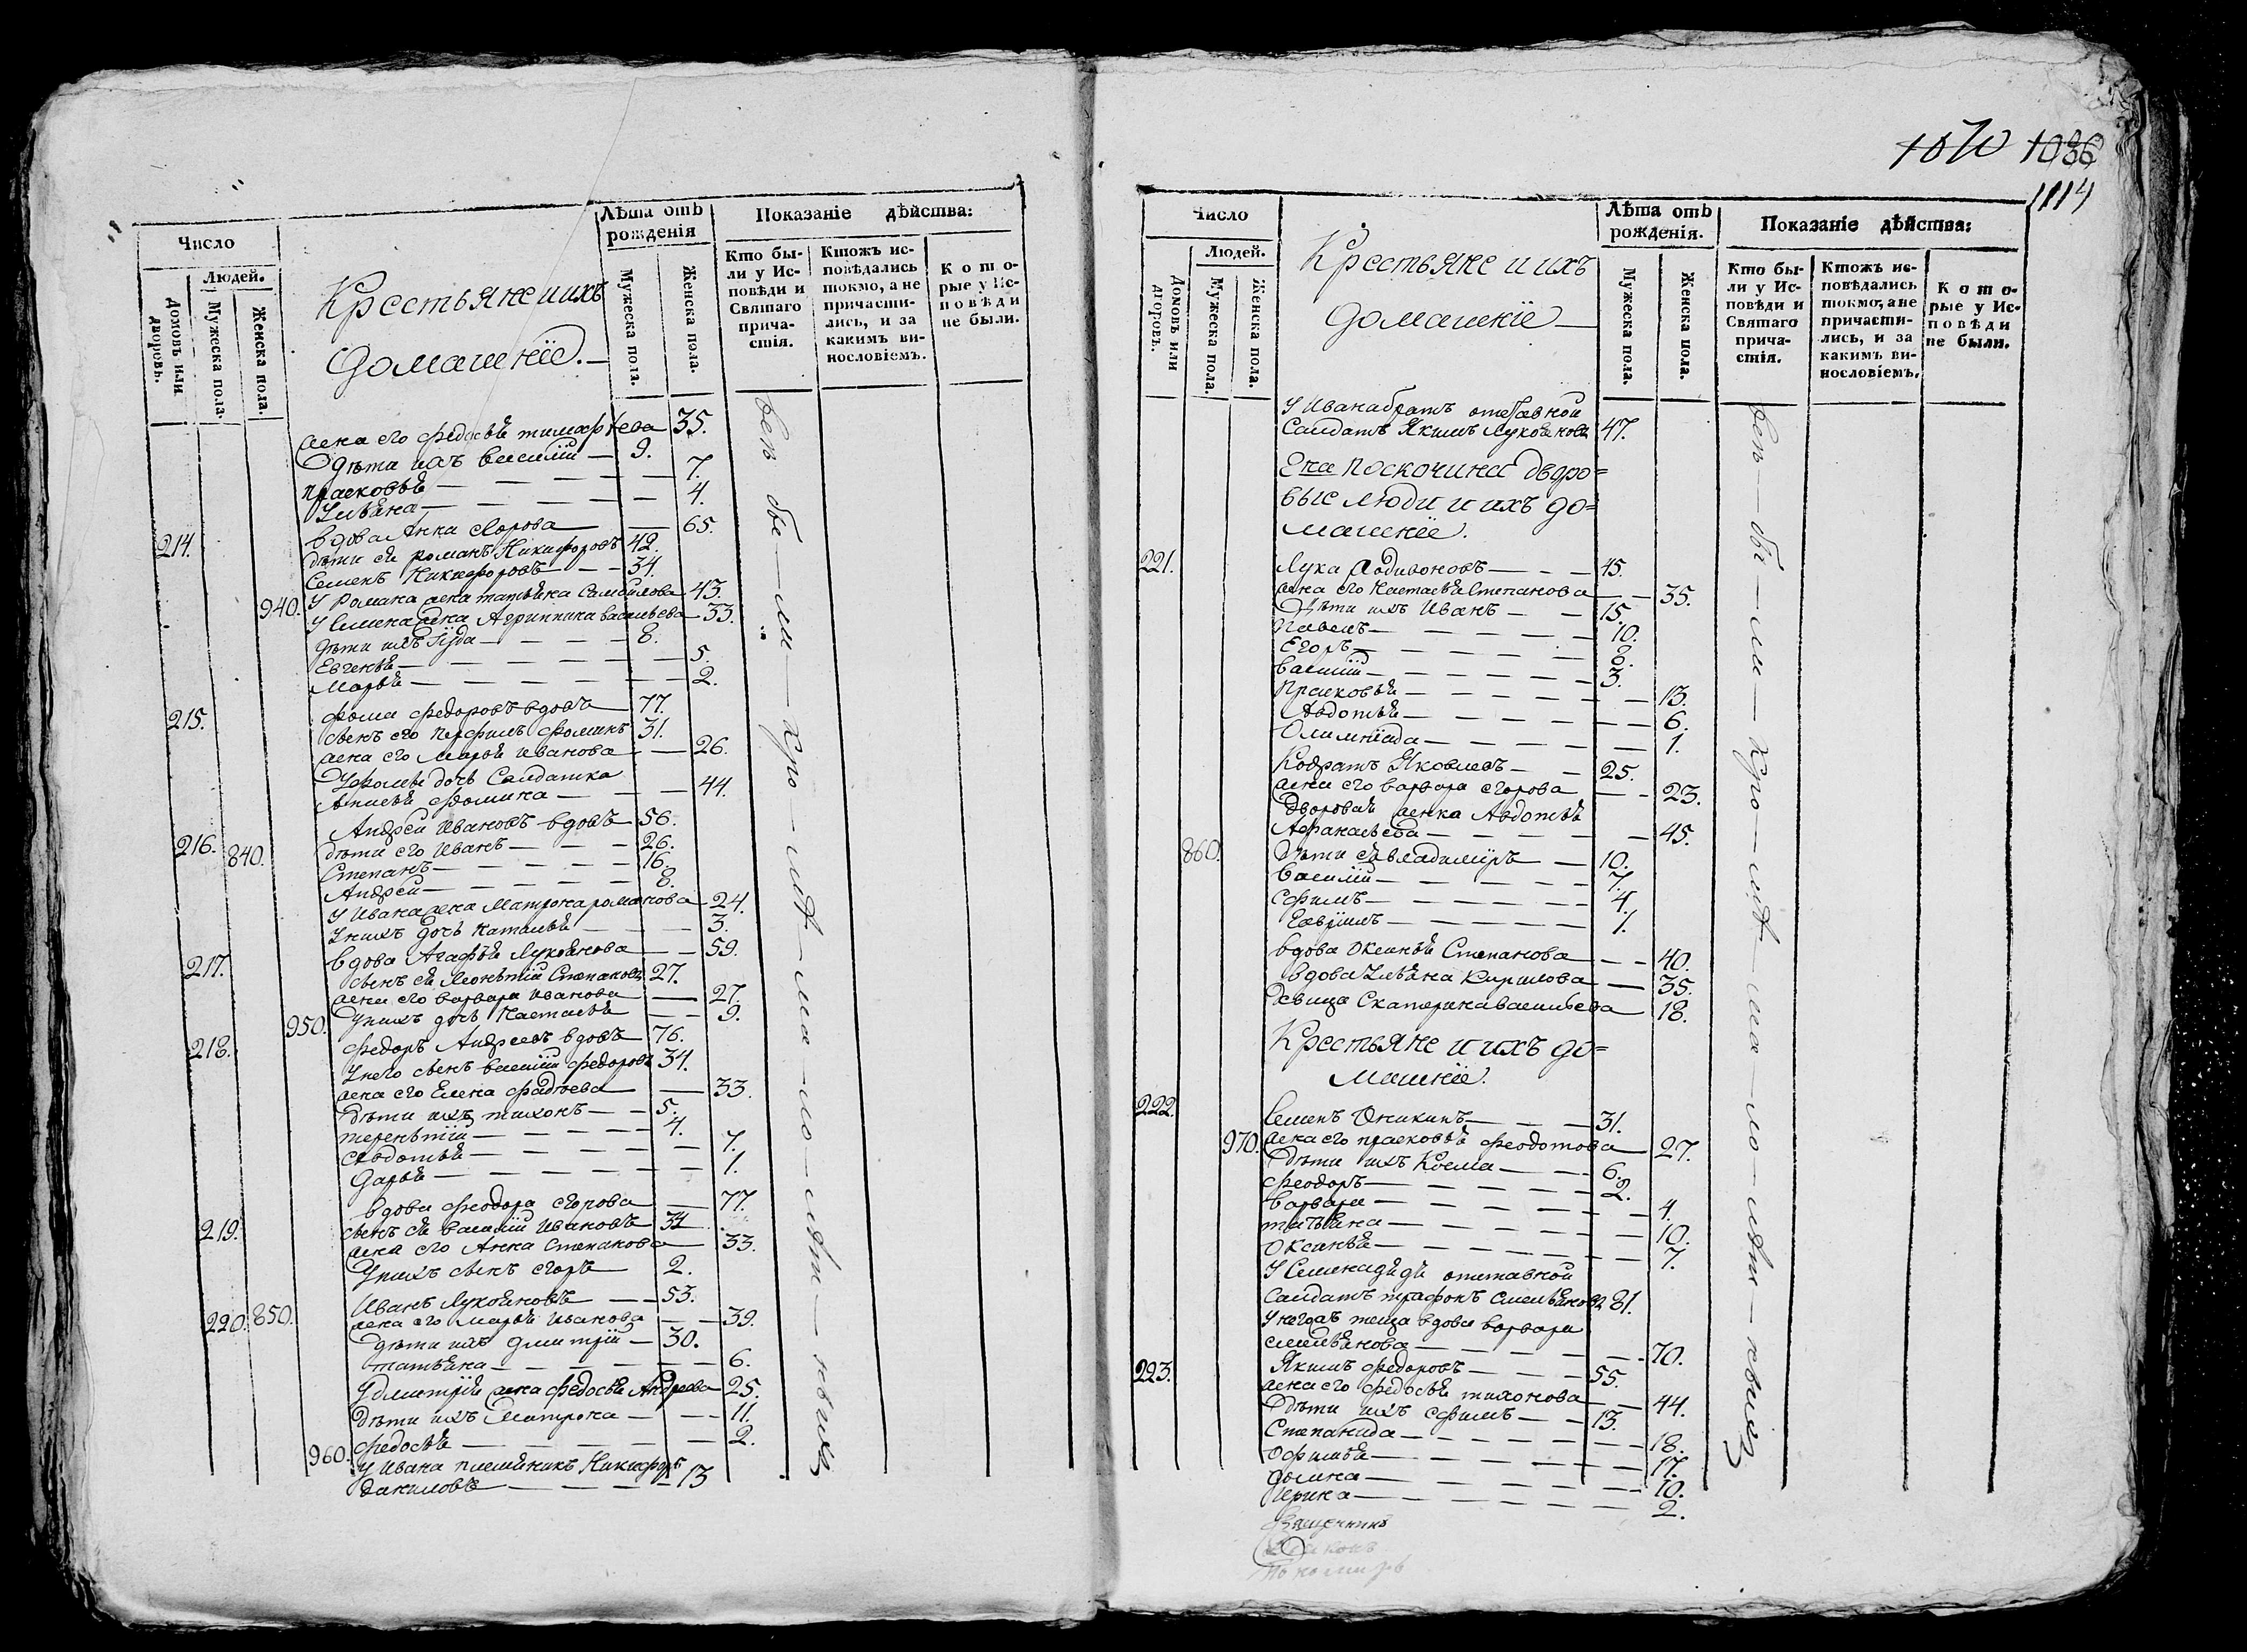 Число
Людей.
Домовъ или дворовъ.
Мужеска пола.
Женска пола.
Крестьяне и ихъ
домашнїе.
Лѣта отъ
рожденія
Мужеска пола.
Женска пола.
Показаніе дѣйства:
Кто бы-
ли у Ис-
повѣди и
Святаго
прича-
стія.
Ктожъ ис-
повѣдались
токмо, а не
причасти-
лись, и за
какимъ ви-
нословіемъ.
К о т о-
рые у Ис-
п о в ѣ д и
не были.
жена его Федосья 35.
дѣти ихъ василій 9.
прасковья 7.
Ульяна 4.
214. вдова Анна Егорова 65.
дѣти ея романъ Никифоровъ 42.
Семенъ Никифоровъ 34.
940. У Романа жена татьяна Самойлова 43.
У Семена жена Агрипина васильева 33.
дѣти ихъ Іуда 8.
Евгенья 5.
Марья 2.
215. Фома Федоровъ вдовъ 77.
сынъ его Перфилъ Фоминъ 31.
жена его Марья Иванова 26.
У Фомы дочь Салдатка
Анисья Фомина 44.
216. Андрей Ивановъ вдовъ 56.
840. дѣти его Иванъ 26.
Степанъ 16.
Андрей 8.
У Ивана жена Матрона романова 24.
У нихъ дочь Наталья 3.
217. вдова Агафья Лукоянова 59.
сынъ ея Леонътїй Степановъ 27.
жена его варвара Иванова 27.
950. У нихъ дочь Настасья 9.
218. Федоръ Андреевъ вдовъ 76.
У него сынъ василій Федоровъ 34.
жена его Елена Фадѣева 33.
дѣти ихъ тихонъ 5.
терентїй 4.
Авдотья 7.
Дарья 1.
вдова Феодора Егорова 77.
219. сынъ ея василїй Ивановъ 34.
жена его Анна Степанова 33.
У нихъ сынъ Егоръ 2.
Иванъ Лукояновъ 53.
220. 850. жена его Марья Иванова 39.
дѣти ихъ дмитрїй 30.
татьяна 6.
У дмитрїя жена Федосья Андреева 25.
дѣти ихъ Матрона 11.
Федосья 2.
960. У Ивана племянникъ Никифоръ
даниловъ 13
всѣ бы ли
1070 1036
1114
Число
Людей.
Домовъ или дворовъ.
Мужеска пола.
Женска пола.
Крестьяне и ихъ
домашнїе
Лѣта отъ
рожденія.
Мужеска пола.
Женска пола.
Показаніе дѣйства:
Кто бы-
ли у Ис-
повѣди и
Святаго
прича-
стія.
Ктожъ ис-
повѣдались
токмо, а не
причасти-
лись, и за
какимъ ви-
нословіемъ.
К о т о-
рые у Ис-
п о в ѣ д и
не были.
У Ивана братъ отставной
Салдатъ Якимъ Лукояновъ 47.
Поскочина дворо=
выс люди и ихъ до=
машнїе.
221. Лука Родивоновъ 45.
жена его Настасья Степанова 35.
Дѣти ихъ Иванъ 15.
Павелъ 10.
Егоръ 8.
василїй 3.
Прасковья 13.
Авдотья 6.
Олимпїада 1.
Кодратъ Яковлевъ 25.
жена его варвара Егорова 23.
дворовая женка Авдотья
Афанасьева 45.
860. Дѣти ея владимїръ 10.
василїй 7.
Ефимъ 4.
1.
вдова Оксинья Степанова 40.
вдова Ульяна Кирилова 35.
девица Екатерина васильева 18.
Крестьяне и ихъ до=
машнїе.
222. Семенъ Оникинъ 31.
970. жена его прасковья Феодотова 27.
дѣти ихъ Косма 6.
Феодоръ 2.
варвара 4.
татьяна 10.
Оксинья 7.
У Семена дядя отставной
Салдатъ трафонъ 81.
У него тѣща вдова варвара
70.
223. Якимъ Федоровъ 55.
жена его Федосья тихонова 44.
дѣти ихъ Ефимъ 13.
Степанида 18.
Офимья 17.
домна 10.
Ирина 2.
всѣ бы ли
Священникъ
Діаконъ
Пономарь